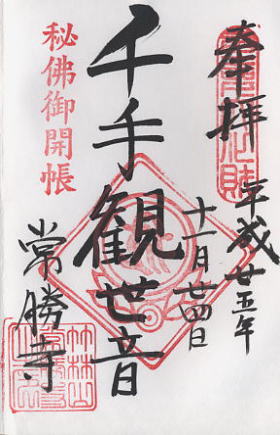 奉拝
平成廿五年
十一月廿四日
千手観世音
秘佛御開帳
常勝寺